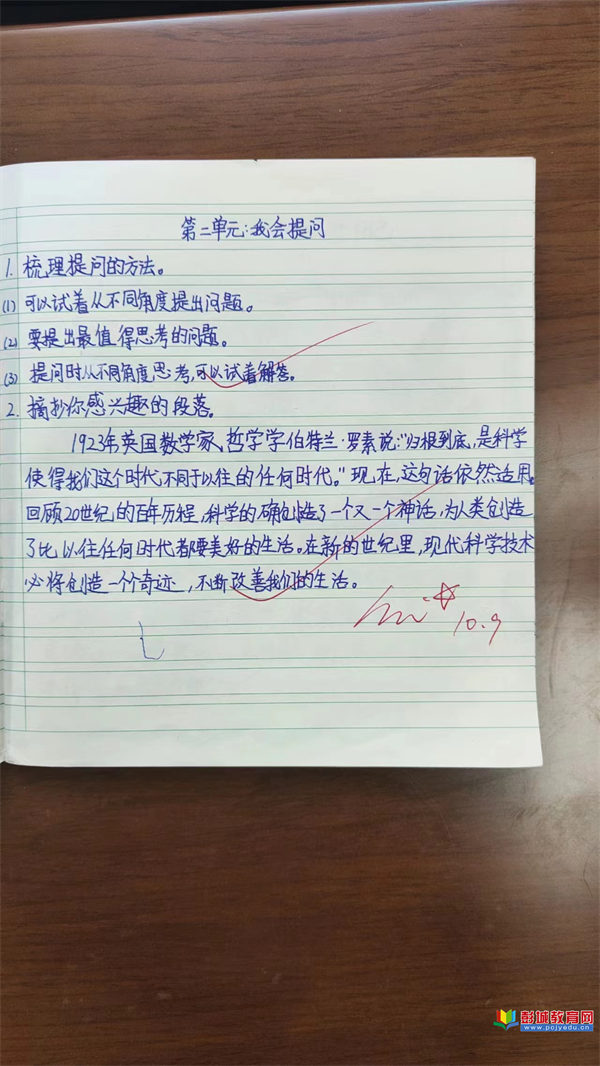 第二单元:我会提问
1. 梳理提问的方法。
(1) 可以试着从不同角度提出问题。
(2) 要提出最值得思考的问题。
(3) 提问时从不同角度思考,可以试着解答。
2. 摘抄你感兴趣的段落。
1923年英国数学家、哲学学伯特兰·罗素说:"归根到底,是科学
使得我们这个时代不同于以往的任何时代。"现在,这句话依然适用。
回顾20世纪的百年历程,科学的确创造了一个又一个神话,为人类创造
了比以往任何时代都要美好的生活。在新的世纪里,现代科学技术
必将创造一个个奇迹,不断改善我们的生活。
10.9
彭城教育网
www.pcjyedu.cn